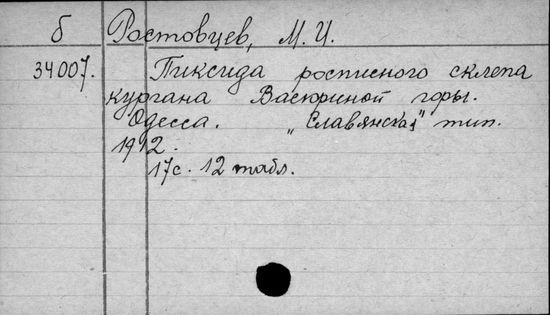 б Ростовцев, М. И.
34007. Пиксида росписного склепа
кургана Васюриной горы.
Одесса. „Славянская" тип.
1912.
17с. 12 табл.